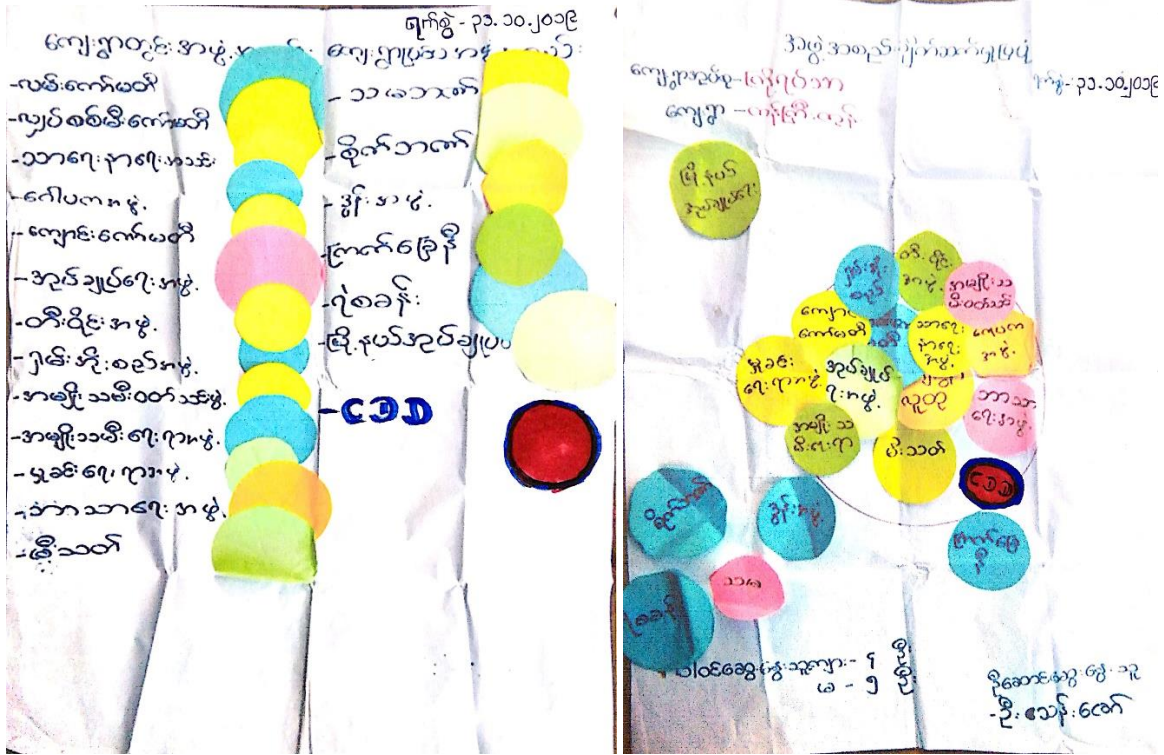 ရက်စွဲ - ၃၁.၁၀.၂၀၁၉
ကျေးရွာတွင်းအဖွဲ့
ကျေးရွာပြင်ပ
-လမ်းကော်မတီ
-လျှပ်စစ်မီးကော်မတီ
-သာရေးနာရေးအသင်း
-ဂေါပကအဖွဲ့
-ကျောင်းကော်မတီ
-အုပ်ချုပ်ရေးအဖွဲ့
-တီးဝိုင်းအဖွဲ့
-ရှမ်းအိုးစည်အဖွဲ့
-အမျိုးသမီးဝတ်သင်းဖွဲ့
-အမျိုးသမီးရေးရာအဖွဲ့
-မှုခင်းရေးရာအဖွဲ့
-ဘာသာရေးအဖွဲ့
-မီးသတ်
-သမဘဏ်
-စိုက်ဘဏ်
-ဒွန်းအဖွဲ့
-ကြက်ခြေနီ
-ရဲစခန်း
-မြို့နယ်အုပ်ချုပ်
-CDD
အဖွဲ့အစည်းချိတ်ဆက်မှုပြပုံ
ရက်စွဲ - ၃၁.၁၀.၂၀၁၉
ကျေးရွာအုပ်စု -
ကျေးရွာ -
မြို့နယ်
အုပ်ချုပ်ရေး
ရှမ်းအိုး
စည်
တီးဝိုင်း
အဖွဲ့
အမျိုးသ
မီးဝတ်သင်း
ကျောင်း
ကော်မတီ
သာရေး
နာရေး
အဖွဲ့
ဂေါပက
အဖွဲ့
မှုခင်း
ရေးရာအဖွဲ့
အုပ်ချုပ်
ရေးအဖွဲ့
လူထု
ဘာသာ
ရေးအဖွဲ့
အမျိုးသ
မီးရေးရာ
မီးသတ်
CDD
စိုက်ဘဏ်
ဒွန်းအဖွဲ့
ကြက်ခြေ
နီ
သမ
ရဲစခန်း
ပါဝင်ဆွေးနွေးသူကျား - ၄ ဦး
မ - ၅ ဦး
ဦးဆောင်ဆွေးနွေးသူ
-ဦးသိန်းဇော်